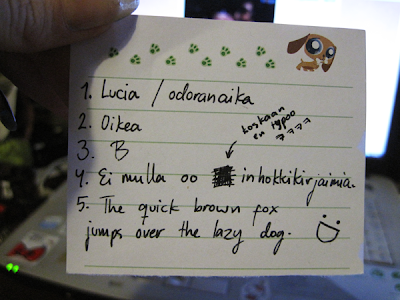 1. Lucia / odoranaika
2. Oikea
koskaan
en typoo
7777
3. B
4. Ei mulla oo inhokkikirjaimia.
5. The quick brown fox
jumps over the lazy dog. :D